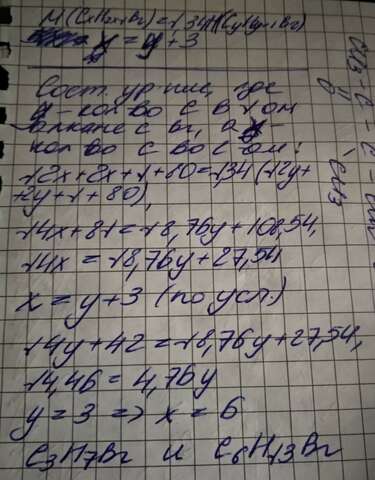 M(CxH2x+1Br)=1,34M(CyH2y+1Br)
x = y+3
Сост. ур-ние, где
y - кол-во C в 1-ом
алкане с Br, а x -
кол-во C во 2-ом:
12x+2x+1+80=1,34(12y+
+2y+1+80),
14x+81=18,76y+108,54,
14x=18,76y+27,54
x=y+3 (по усл.)
14y+42=18,76y+27,54,
14,46=4,76y
y=3 => x=6
C3H7Br и C6H13Br
CH3-C-C-
CH3